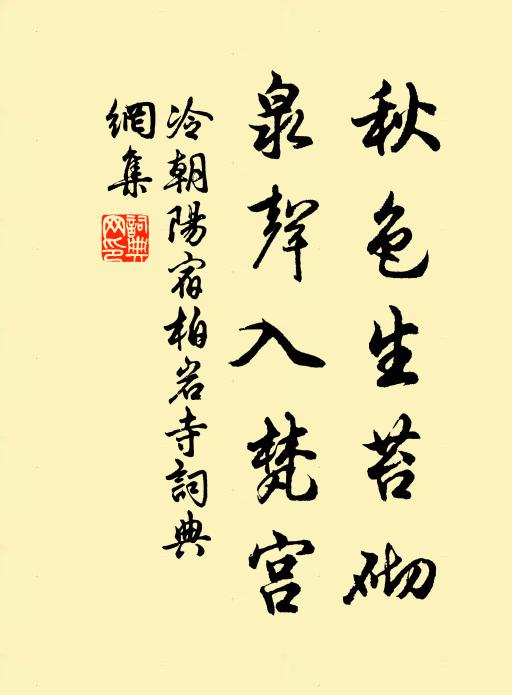 秋色生苔砌
泉聲入梵宮
冷朝陽宿柏岩寺詞典
網集
詞典
网印